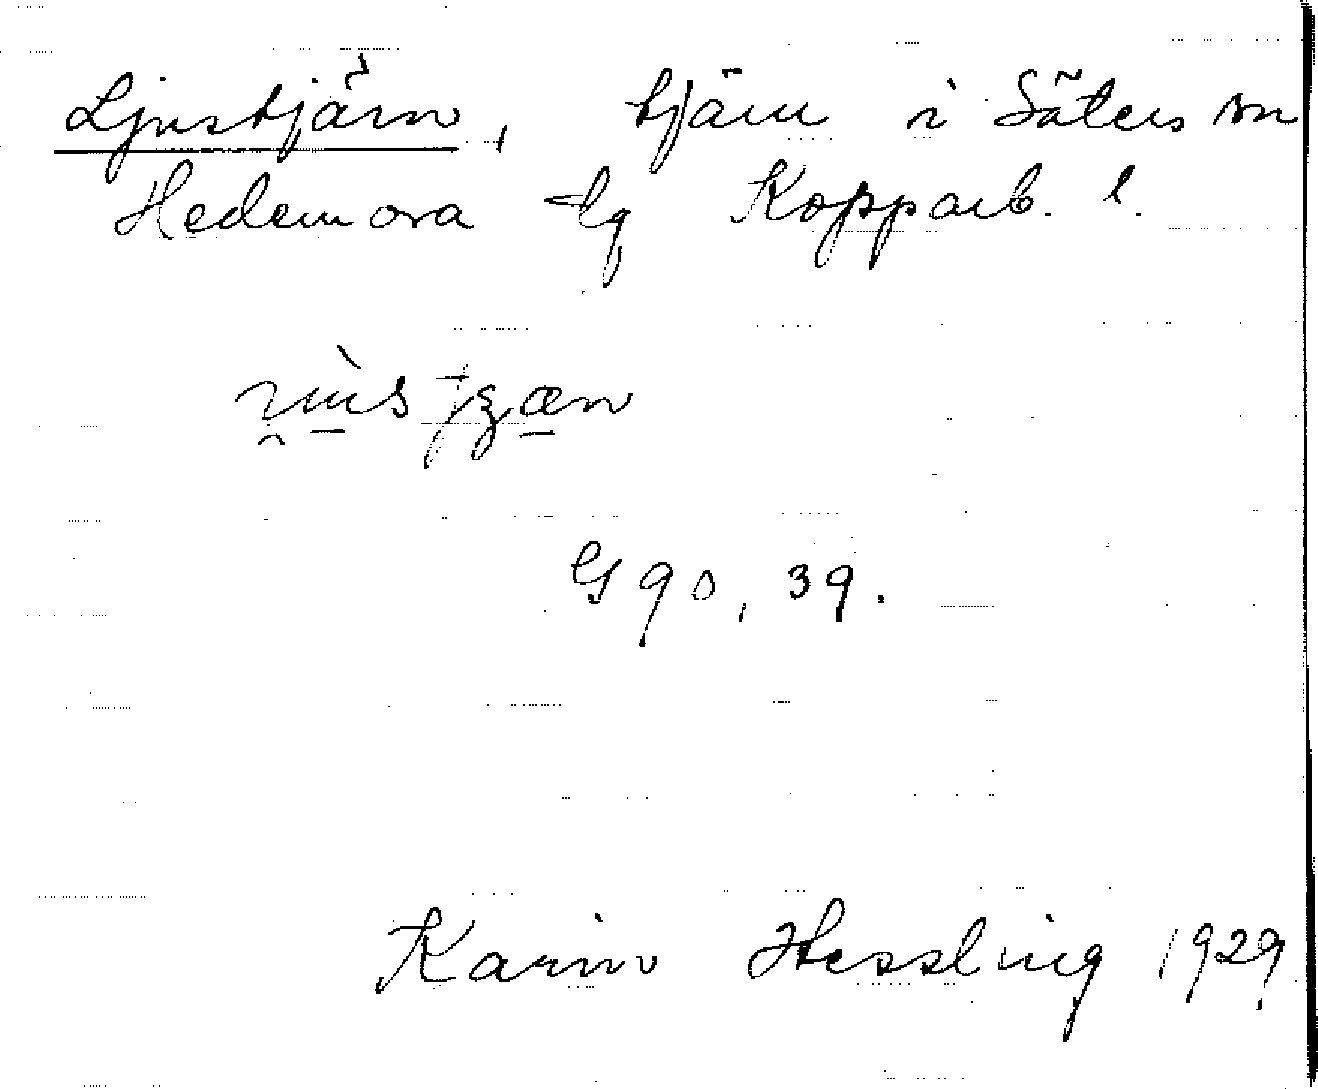 Ljustjärn, tjärn i Säters sn
Hedemora tg Kopparb. l.
G 90, 39.
Karin Hessling 1929